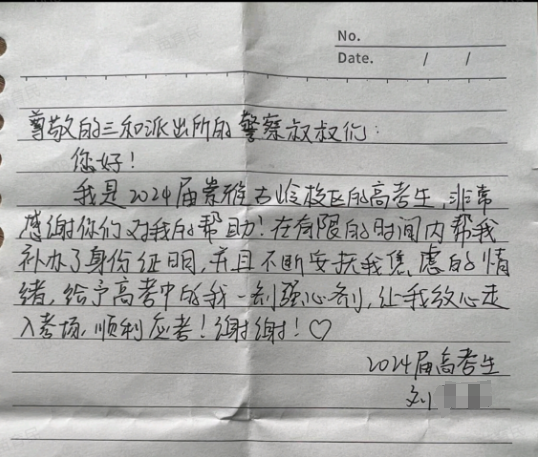 No.
Date. / /
尊敬的三和派出所的警察叔叔们:
您好!
我是2024届崇雅古岭校区的高考生,非常
感谢你们对我的帮助!在有限的时间内帮我
补办了身份证明,并且不断安抚我焦虑的情
绪,给予高考中的我一剂强心剂,让我放心走
入考场,顺利应考!谢谢!♡
2024届高考生
刘